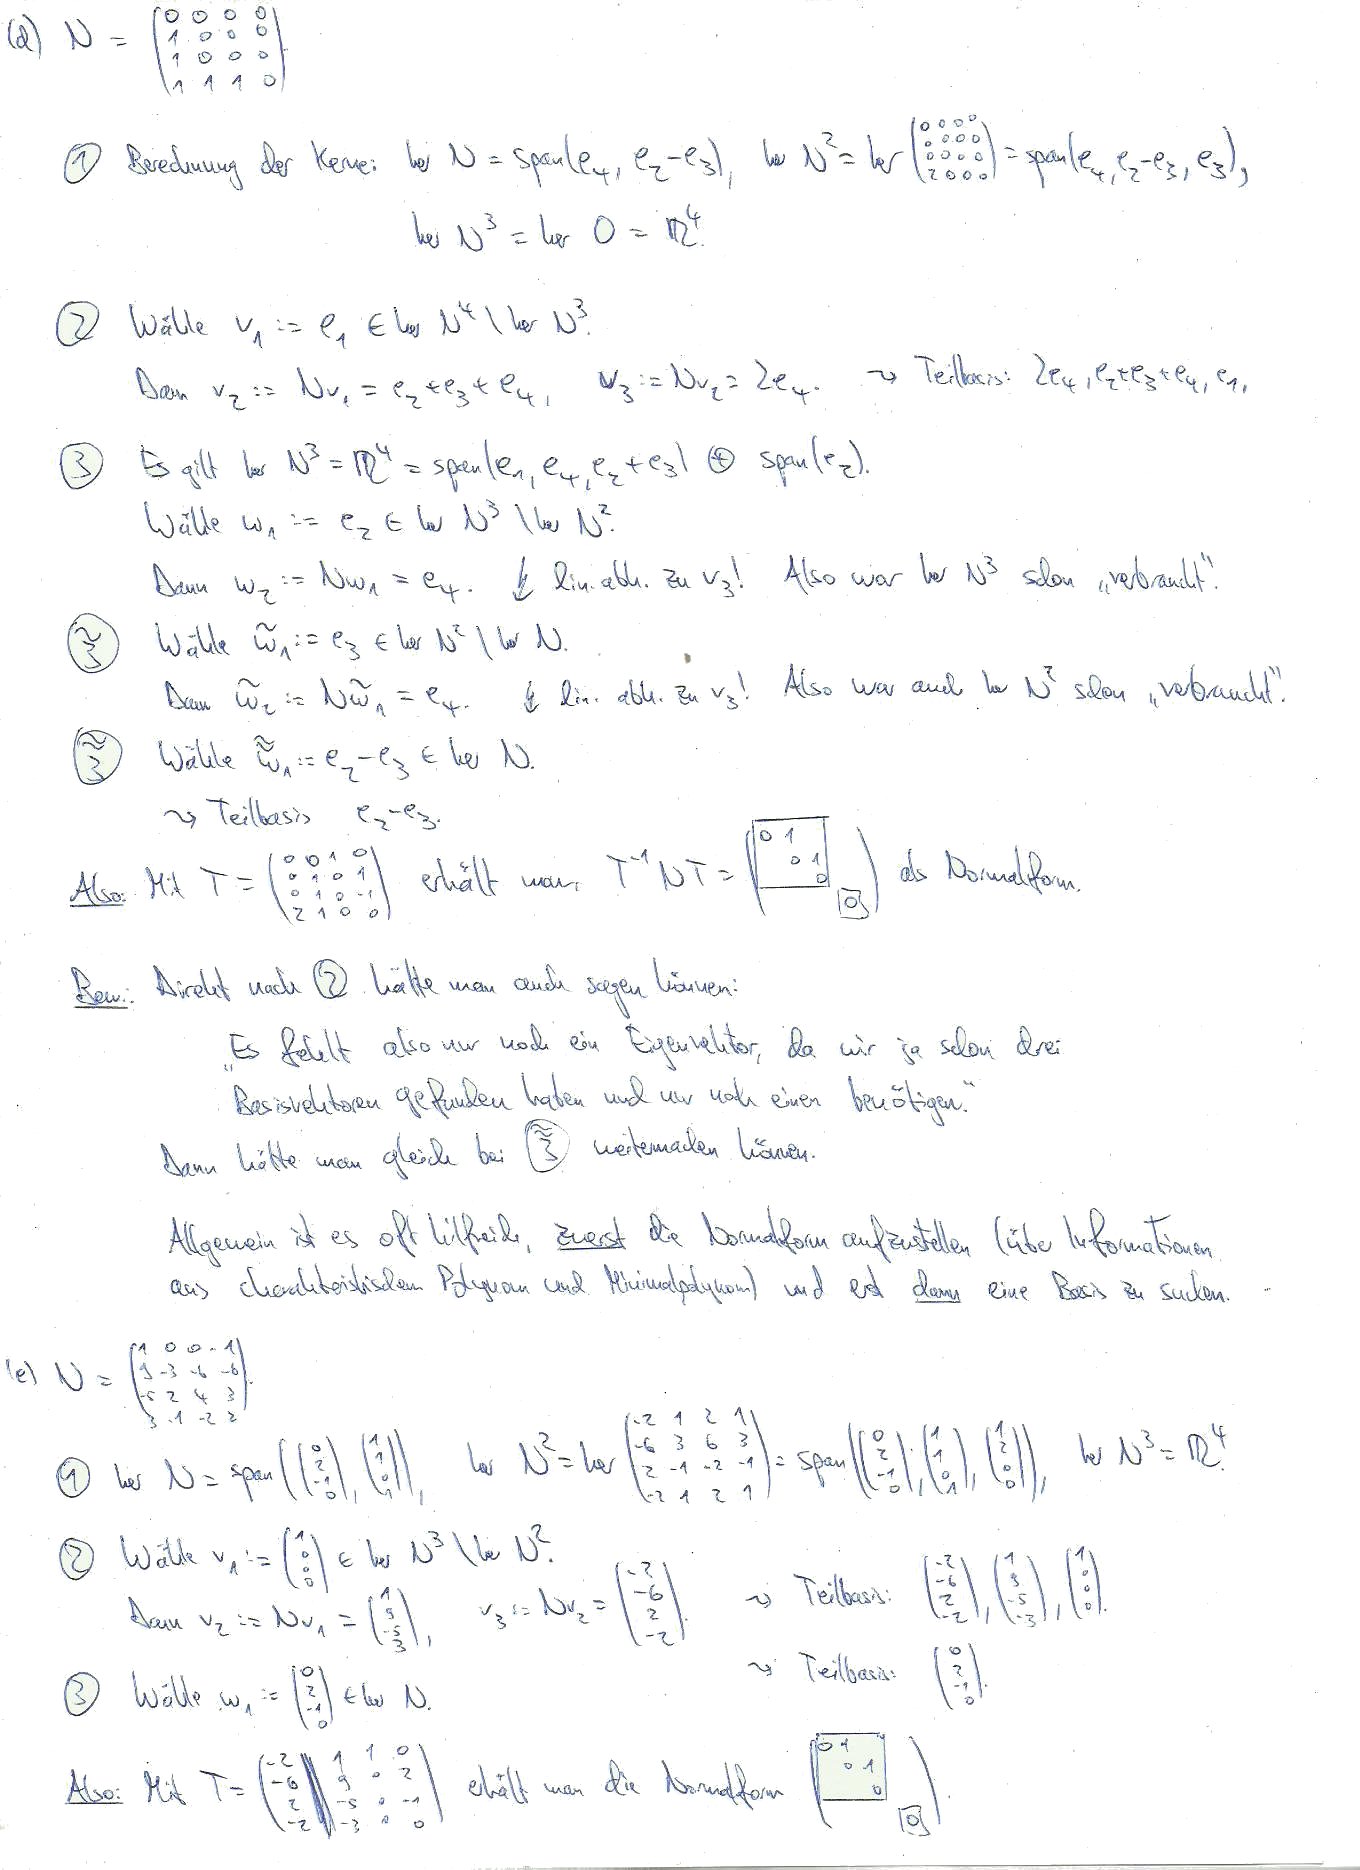 (d) N = (0 0 0 0 / 1 0 0 0 / 1 0 0 0 / 1 1 1 0).
① Berechnung der Kerne: ker N = span(e₄, e₂-e₃), ker N² = ker (0 0 0 0 / 0 0 0 0 / 0 0 0 0 / 2 0 0 0) = span(e₄, e₂-e₃, e₃),
ker N³ = ker 0 = ℝ⁴.
② Wähle v₁ := e₁ ∈ ker N⁴ \ ker N³.
Dann v₂ := Nv₁ = e₂+e₃+e₄, v₃ := Nv₂ = 2e₄. ⇝ Teilbasis: 2e₄, e₂+e₃+e₄, e₁.
③ Es gilt ker N³ = ℝ⁴ = span(e₁, e₄, e₂+e₃) ⊕ span(e₂).
Wähle w₁ := e₂ ∈ ker N³ \ ker N².
Dann w₂ := Nw₁ = e₄. ↯ lin. abh. zu v₃! Also war ker N³ schon „verbraucht".
3̃ Wähle w̃₁ := e₃ ∈ ker N² \ ker N.
Dann w̃₂ := Nw̃₁ = e₄. ↯ lin. abh. zu v₃! Also war auch ker N² schon „verbraucht".
3̃̃ Wähle w̃̃₁ := e₂-e₃ ∈ ker N.
⇝ Teilbasis e₂-e₃.
Also: Mit T = (0 0 1 0 / 0 1 0 1 / 0 1 0 -1 / 2 1 0 0) erhält man T⁻¹NT = (0 1 / 0 1 / 0 / 0) als Normalform.
Bem.: Direkt nach ② hätte man auch sagen können:
„Es fehlt also nur noch ein Eigenvektor, da wir ja schon drei
Basisvektoren gefunden haben und nur noch einen benötigen."
Dann hätte man gleich bei 3̃̃ weitermachen können.
Allgemein ist es oft hilfreich, zuerst die Normalform aufzustellen (über Informationen
aus charakteristischem Polynom und Minimalpolynom) und erst dann eine Basis zu suchen.
(e) N = (1 0 0 -1 / 9 -3 -6 -6 / -5 2 4 3 / 3 -1 -2 2).
① ker N = span((0 / 2 / -1 / 0), (1 / 1 / 0 / 1)), ker N² = ker (-2 1 2 1 / -6 3 6 3 / 2 -1 -2 -1 / -2 1 2 1) = span((0 / 2 / -1 / 0), (1 / 1 / 0 / 1), (1 / 2 / 0 / 0)), ker N³ = ℝ⁴.
② Wähle v₁ := (1 / 0 / 0 / 0) ∈ ker N³ \ ker N².
Dann v₂ := Nv₁ = (1 / 9 / -5 / 3), v₃ := Nv₂ = (-2 / -6 / 2 / -2). ⇝ Teilbasis: (-2 / -6 / 2 / -2), (1 / 9 / -5 / -3), (1 / 0 / 0 / 0).
③ Wähle w₁ := (0 / 2 / -1 / 0) ∈ ker N. ⇝ Teilbasis: (0 / 2 / -1 / 0).
Also: Mit T = (-2 1 1 0 / -6 9 0 2 / 2 -5 0 -1 / -2 -3 0 0) erhält man die Normalform (0 1 / 0 1 / 0 / 0).